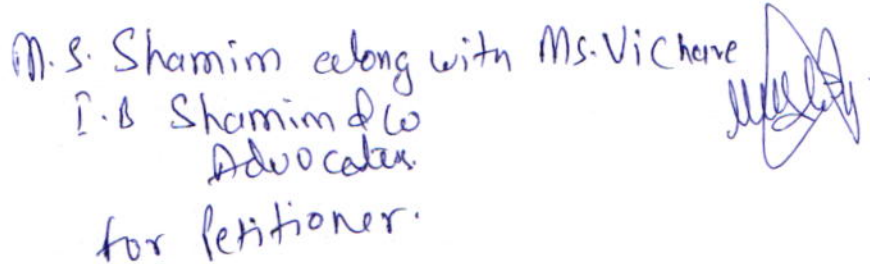 M.S. Shamim along with Ms. Vichare
I.B Shamim & Co
Advocates.
for Petitioner.